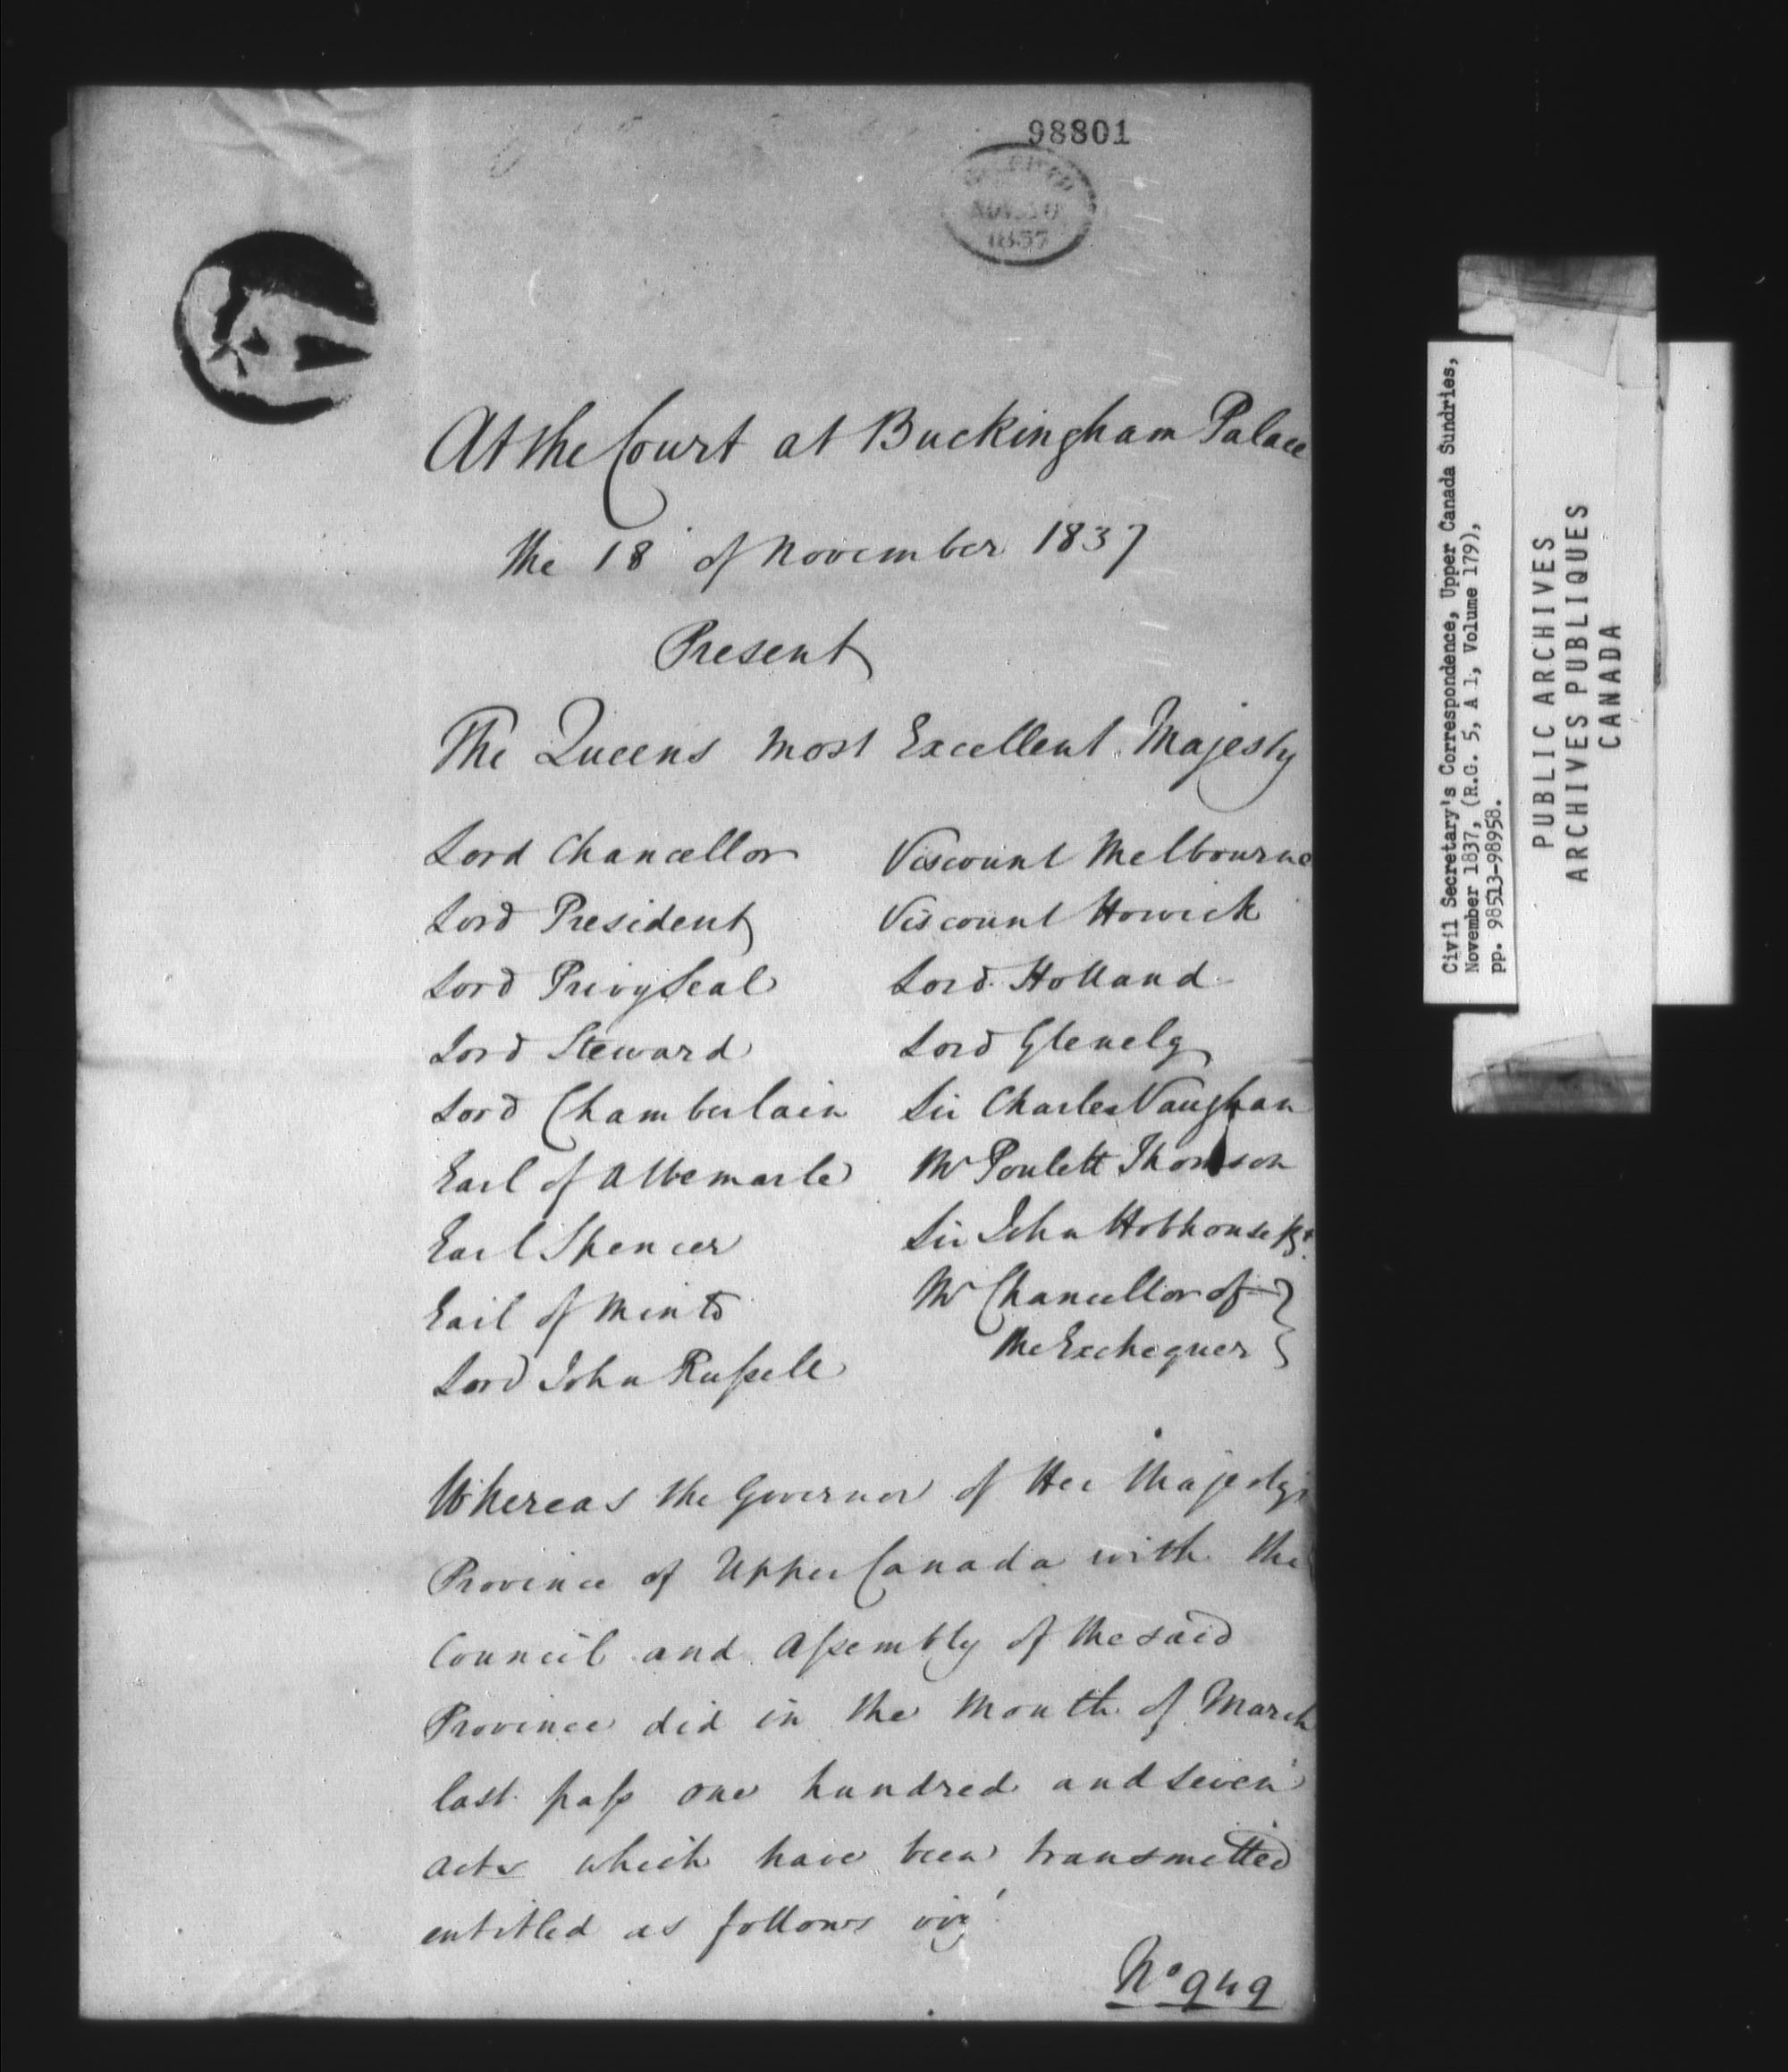 98801
NOV 30
1837
At the Court at Buckingham Palace
the 18 of November 1837
Present
The Queens most Excellent Majesty
Lord Chancellor
Lord President
Lord Privy Seal
Lord Steward
Lord Chamberlain
Earl of Albemarle
Earl Spencer
Earl of Minto
Lord John Russell
Viscount Melbourne
Viscount Howick
Lord Holland
Lord Glenelg
Sir Charles Vaughan
Mr Poulett Thomson
Sir John Hobhouse Bt.
Mr Chancellor of
the Exchequer
Whereas the Governor of Her Majesty's
Province of Upper Canada with the
Council and Assembly of the said
Province did in the Month of March
last pass one hundred and seven
Acts which have been transmitted
entitled as follows viz.
No 949
Civil Secretary's Correspondence, Upper Canada Sundries,
November 1837, (R.G. 5, A 1, Volume 179),
pp. 98513-98958.
PUBLIC ARCHIVES
ARCHIVES PUBLIQUES
CANADA